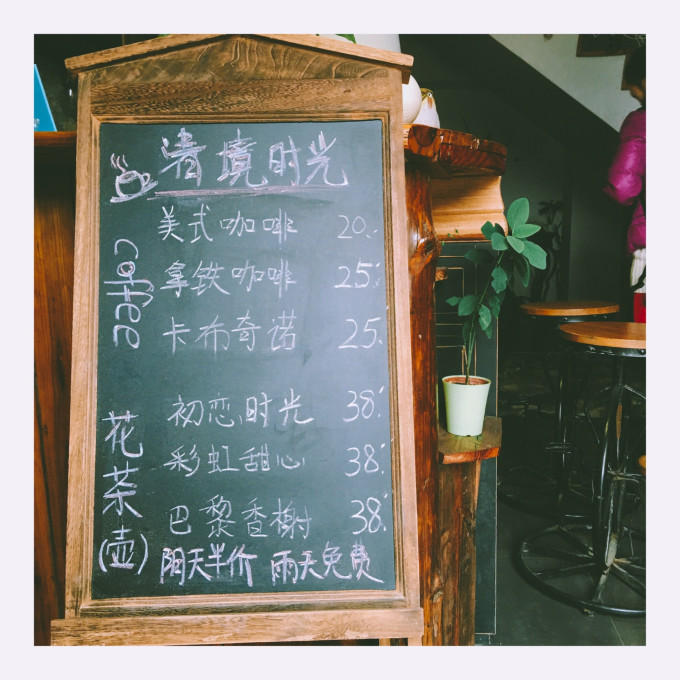 清境时光
coffee
美式咖啡 20.
拿铁咖啡 25.
卡布奇诺 25.
花茶(壶)
初恋时光 38.
彩虹甜心 38.
巴黎香榭 38.
阳天半价 雨天免费